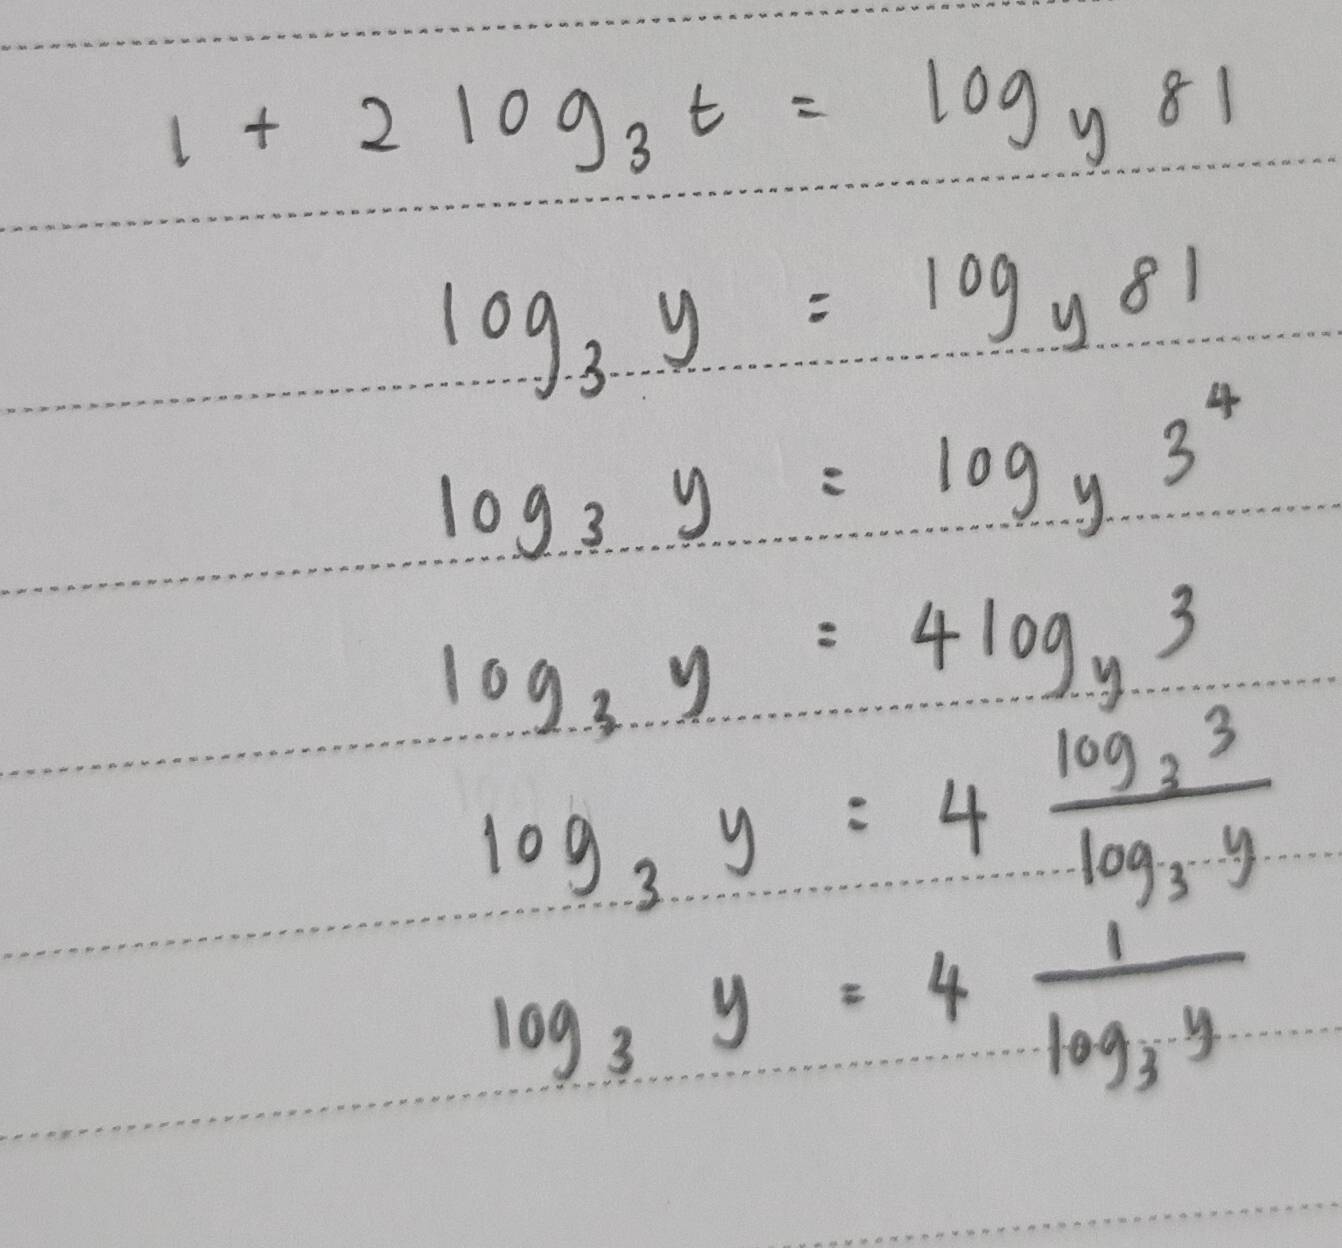 1 + 2 log₃ t = log_y 81
log₃ y = log_y 81
log₃ y = log_y 3⁴
log₃ y = 4 log_y 3
log₃ y = 4 \frac{log₃ 3}{log₃ y}
log₃ y = 4 \frac{1}{log₃ y}